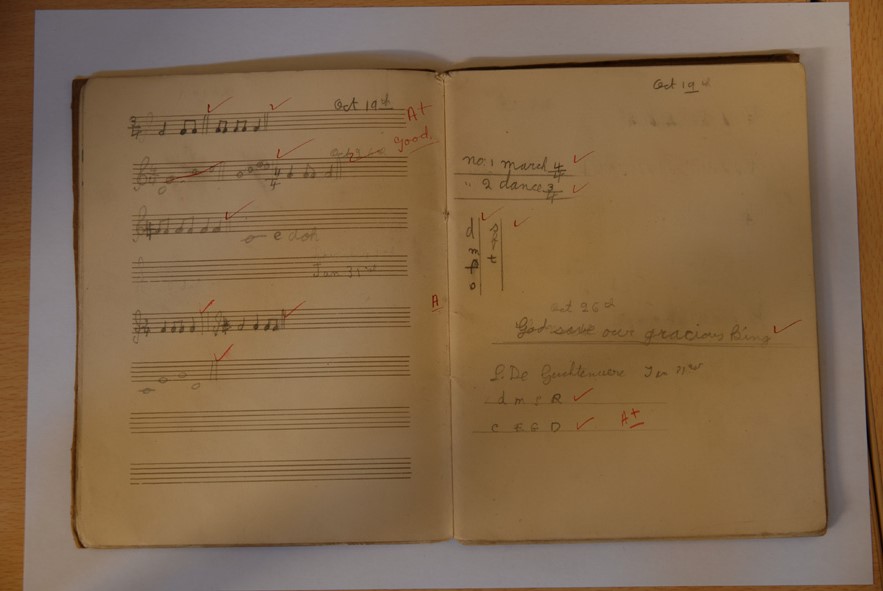 Oct 19th
A+
good.
3/4
4/4
e doh
Jan 31st
A
Oct 19th
no. 1 march 4/4
" 2 dance 3/4
d s
m
t
o
Oct 26th
God save our gracious King
S. De
d m s R
C E G D
A+